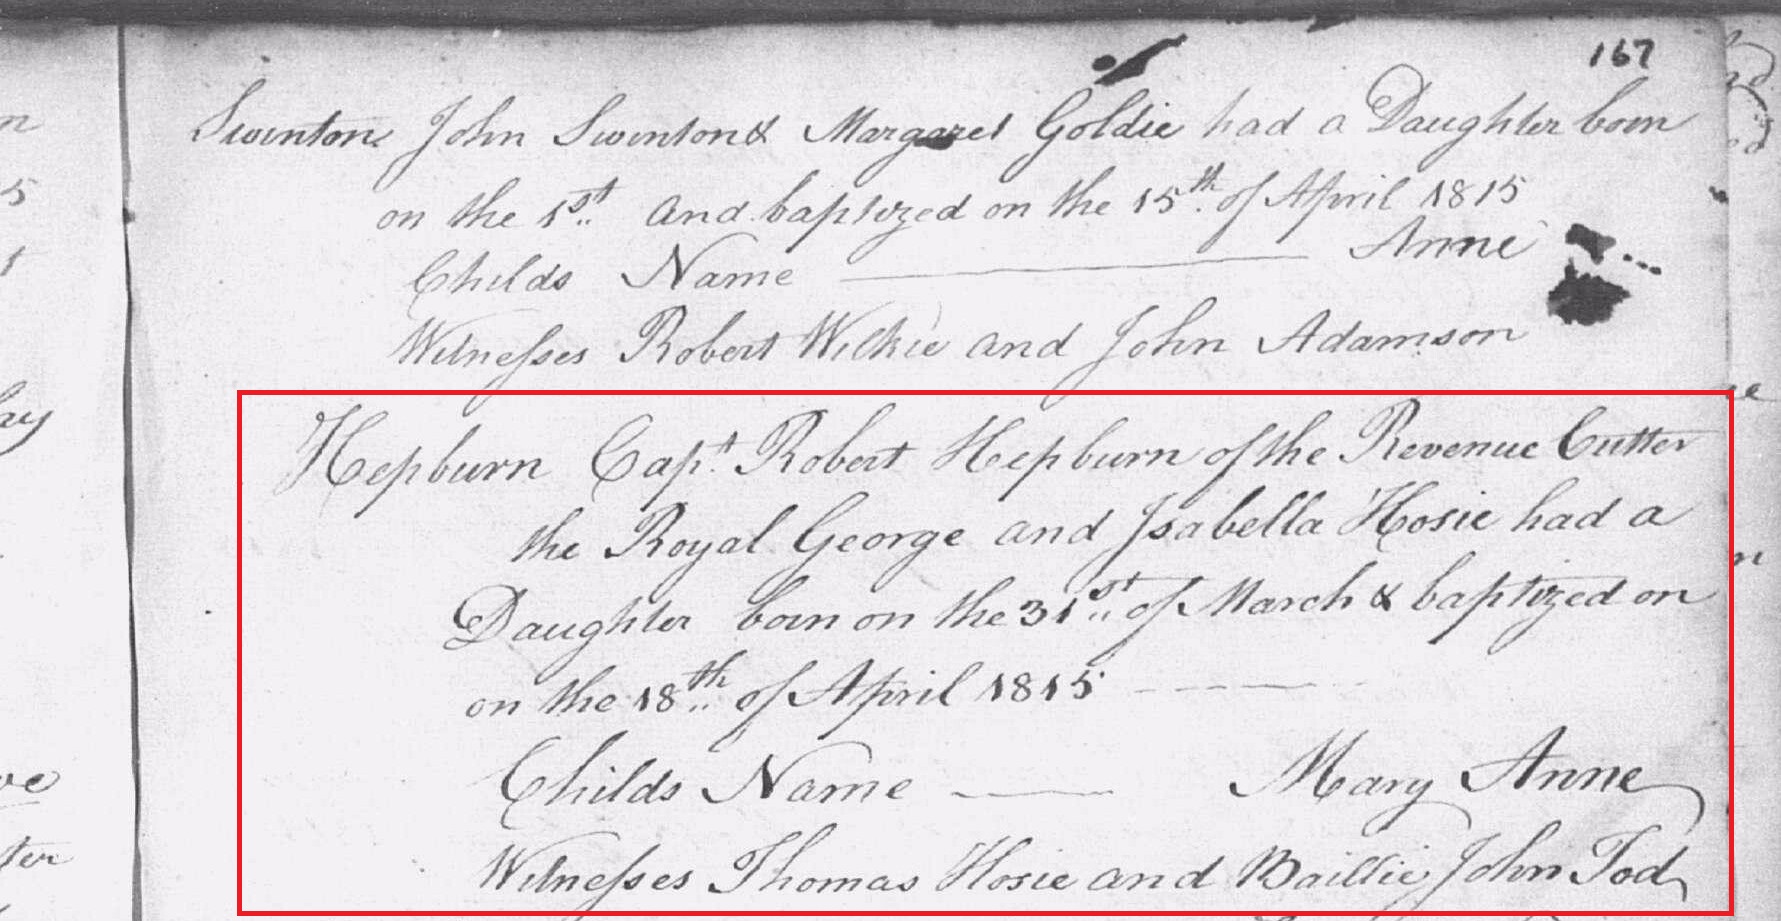 167
Swinton John Swinton & Margaret Goldie had a Daughter born
on the 1st and baptized on the 15th of April 1815
Childs Name Anne
Witnesses Robert Wilkie and John Adamson
Hepburn Capt. Robert Hepburn of the Revenue Cutter
the Royal George and Isabella Hosie had a
Daughter born on the 31st of March & baptized on
on the 18th of April 1815
Childs Name Mary Anne
Witnesses Thomas Hosie and Baillie John Tod